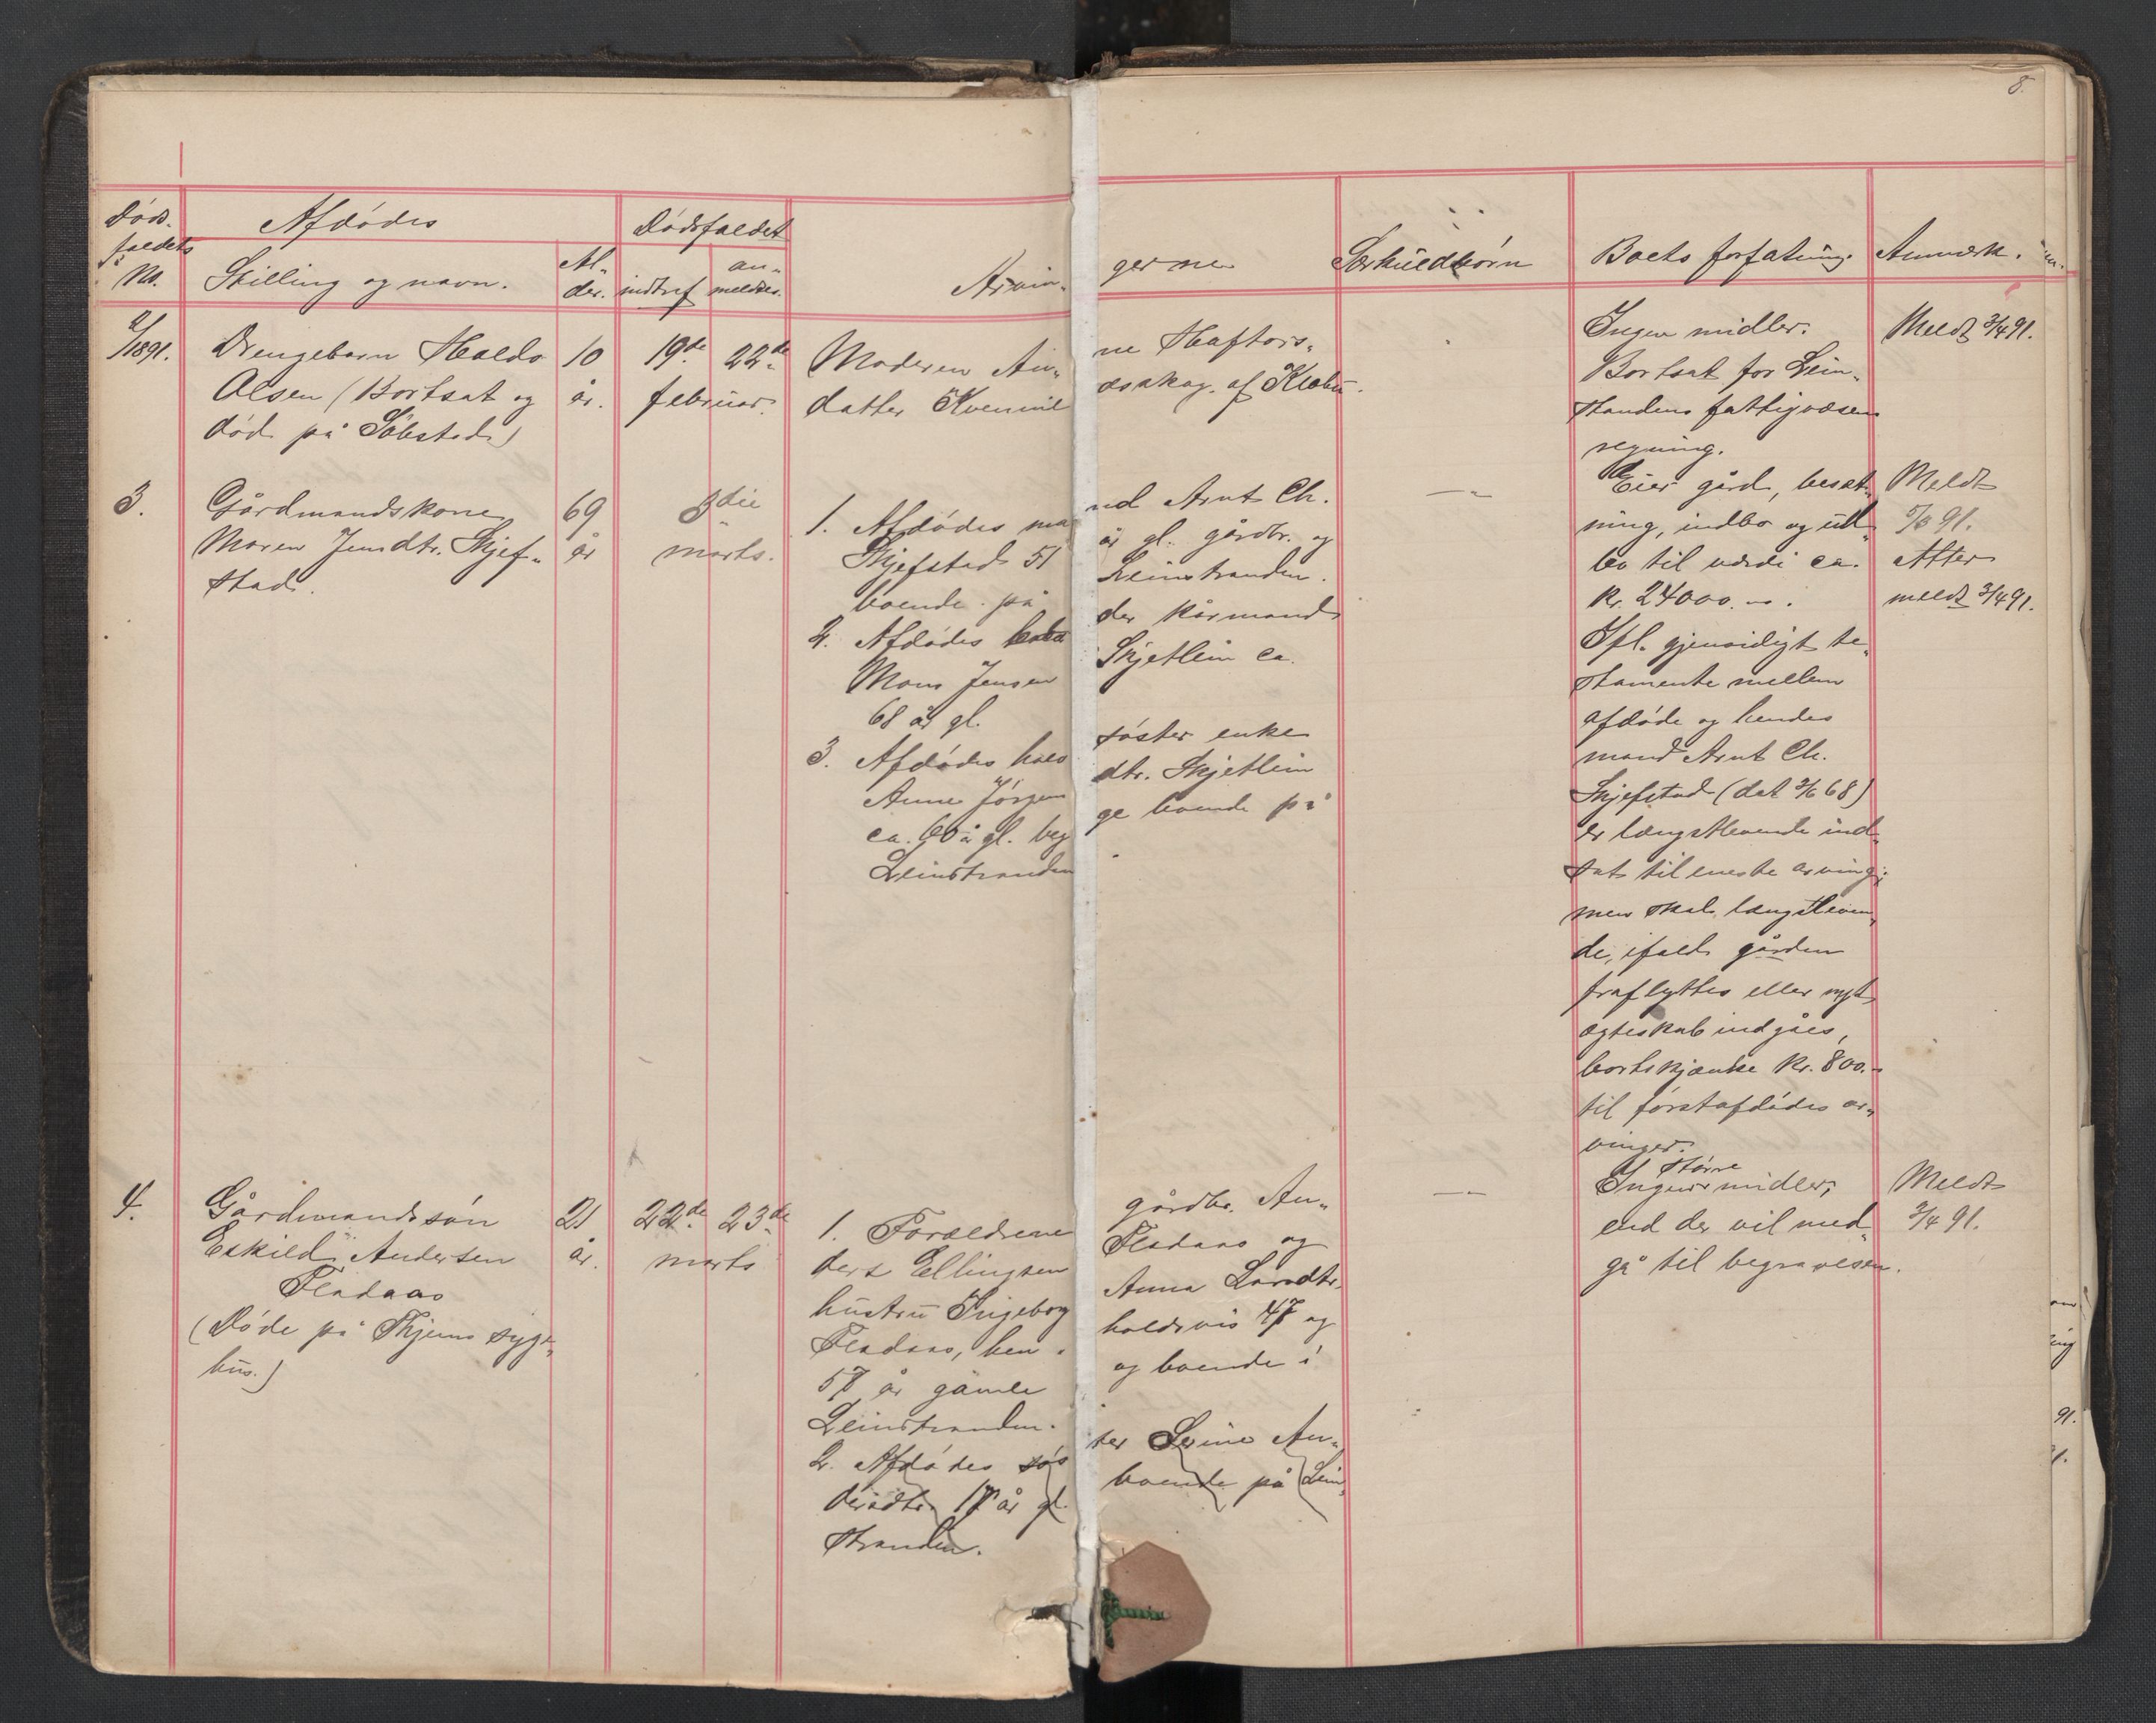 8.
Døds-
faldets
No.
Afdødes
Stilling og navn.
Al-
der.
Dødsfaldet
indtraf
an-
meldtes.
Arvin-
gerne
Særkuldbørn
Boets forfatning.
Anmærk.
2/1891.
Drengebarn Haldo
Olsen (Bortsat og
død på Søbstad)
10
år.
19de 22de
februar.
Moderen An- ne Haftors-
datter Kvenild æsskog. af Klæbu.
Ingen midler.
Bortsat for Lein-
strandens fattigvæsens
regning.
Meldt 3/4 91.
3.
Gårdmandskone
Maren Jensdtr. Skjef-
stad.
69
år
3die
marts.
1. Afdødes ma nd Arnt Ch.
Skjefstad 51 år gl. gårdbr. og
boende på Leinstranden.
2. Afdødes halv der kårmand
Mons Jensen Skjetlein ca.
68 år gl.
3. Afdødes halv søster enke
Anne Jørgens dtr. Skjetlein
ca. 60 år gl. beg ge boende på
Leinstranden
—"—
Eier gård, besæt-
ning, indbo og ud-
bo til værdi ca.
kr. 24000.
Ifl. gjensidigt te-
stamente mellem
afdøde og hendes
mand Arnt Ch.
Skjefstad (dat 3/6 68)
er længstlevende ind-
sat til eneste arving;
men skal længstleven-
de, ifald gården
fraflyttes eller nyt
ægteskab indgåes,
bortskjænke kr. 800.-
til førstafdødes ar-
vinger.
Meldt
5/3 91.
Atter
meldt 3/4 91.
4.
Gårdmandssøn
Eskild Andersen
Fladaas
(Døde på Thjems syge-
hus.)
21
år.
22de 23de
marts
1. Forældrene gårdbr. An-
ders Ellingsen Fladaas og
hustru Ingeborg Anna Larsdtr.
Fladaas, hen- holdsvis 47 og
57 år gamle og boende i
Leinstranden.
2. Afdødes søs ter Serine An-
dersdtr. 17 år gl. boende på Lein-
stranden.
—"—
Ingen større midler,
end der vil med-
gå til begravelsen.
Meldt
3/4 91.